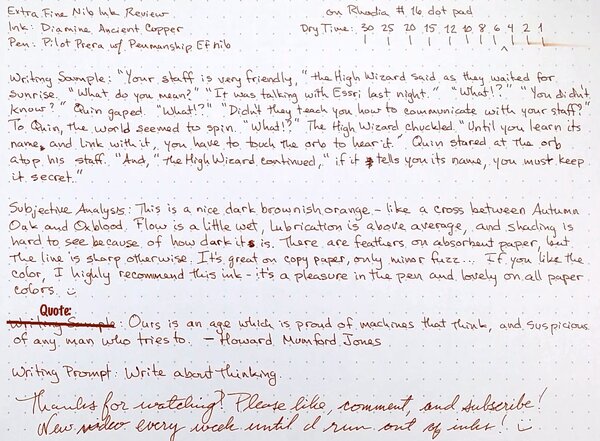 Extra Fine Nib Ink Review on Rhodia #16 dot pad
Ink: Diamine Ancient Copper Dry Time: 30 25 20 15 12 10 8 6 4 2 1
Pen: Pilot Prera w/ Penmanship Ef Nib
Writing Sample: "Your staff is very friendly," the High Wizard said as they waited for
sunrise. "What do you mean?" "It was talking with Essri last night." "What!?" "You didn't
know?" Quin gaped. "What!?" "Didn't they teach you how to communicate with your staff?"
To Quin, the world seemed to spin. "What!?" The High Wizard chuckled. "Until you learn its
name, and link with it, you have to touch the orb to hear it." Quin stared at the orb
atop his staff. "And," the High Wizard continued, "if it tells you its name, you must keep
it secret."
Subjective Analysis: This is a nice dark brownish orange - like a cross between Autumn
Oak and Oxblood. Flow is a little wet, lubrication is above average, and shading is
hard to see because of how dark it is. There are feathers on absorbent paper, but
the line is sharp otherwise. It's great on copy paper, only minor fuzz... If you like the
color, I highly recommend this ink - it's a pleasure in the pen and lovely on all paper
colors. :)
Quote:
Writing Sample: Ours is an age which is proud of machines that think, and suspicious
of any man who tries to. - Howard Mumford Jones
Writing Prompt: Write about thinking.
Thanks for watching! Please like, comment, and subscribe!
New video every week until I run out of inks! :)